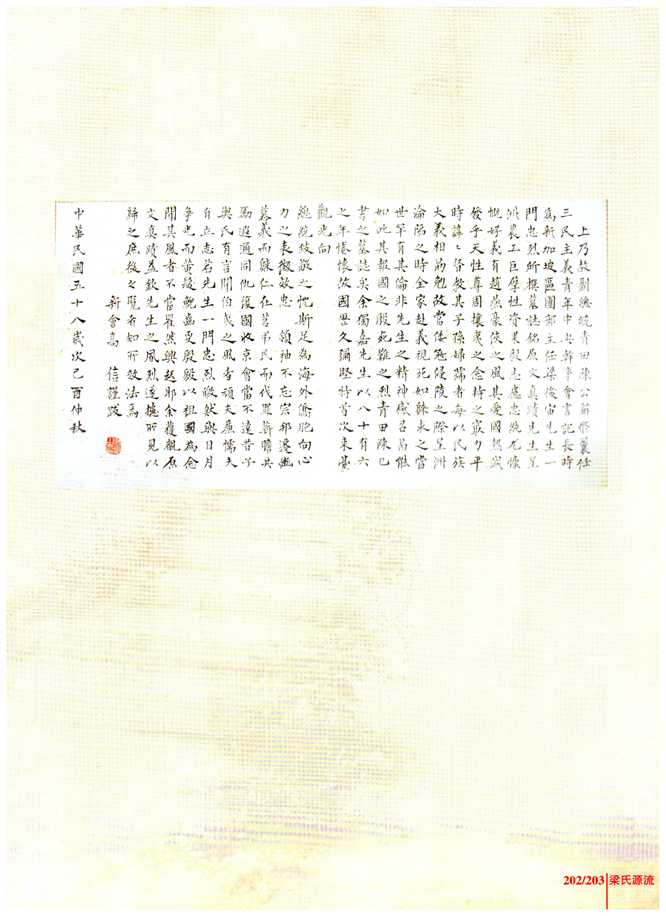 上乃故副總統青田陳公辭修襄任
三民主義青年中央幹事會書記長時
為新加坡區團部主任梁後宙先生一
門忠烈所撰墓誌銘原文真蹟先生星
洲農工巨擘性資果毅志慮忠純尤慷
慨好義有趙燕豪俠之風其愛國熱忱
發乎天性尊國攘夷之念持之最力平
時諄諄 教其子孫婦孺者每以民族
大義相勗勉故當倭寇侵陵之際星洲
淪陷之時全家赴義視死如歸求之當
世罕有其倫非先生之精神感召曷
如此其報國之殷死難之烈青田陳已
書之墓誌矣余獨嘉先生以八十有六
之年惓懷故國歷久彌堅 首次來臺
觀光向
總統披瀝之忱斯足為海外僑胞向心
力之表徵效忠 領袖不忘宗邦
慕義而 仁在莒弔民而伐罪薪膽共
為遐邇同仇復國收京會當不遠昔
氏有言聞伯夷之風者頑夫廉懦夫
有立志若先生一門忠烈 然與日月
爭光而黃髮 更殷殷以祖國為念
聞其風者不當翟然興起耶余獲觀原
文真蹟益欽先生之風烈遂攄所見以
歸之庶後之覽者知所效法焉
新會高 信謹跋
中華民國五十八歲次己酉仲秋
202/203 梁氏源流